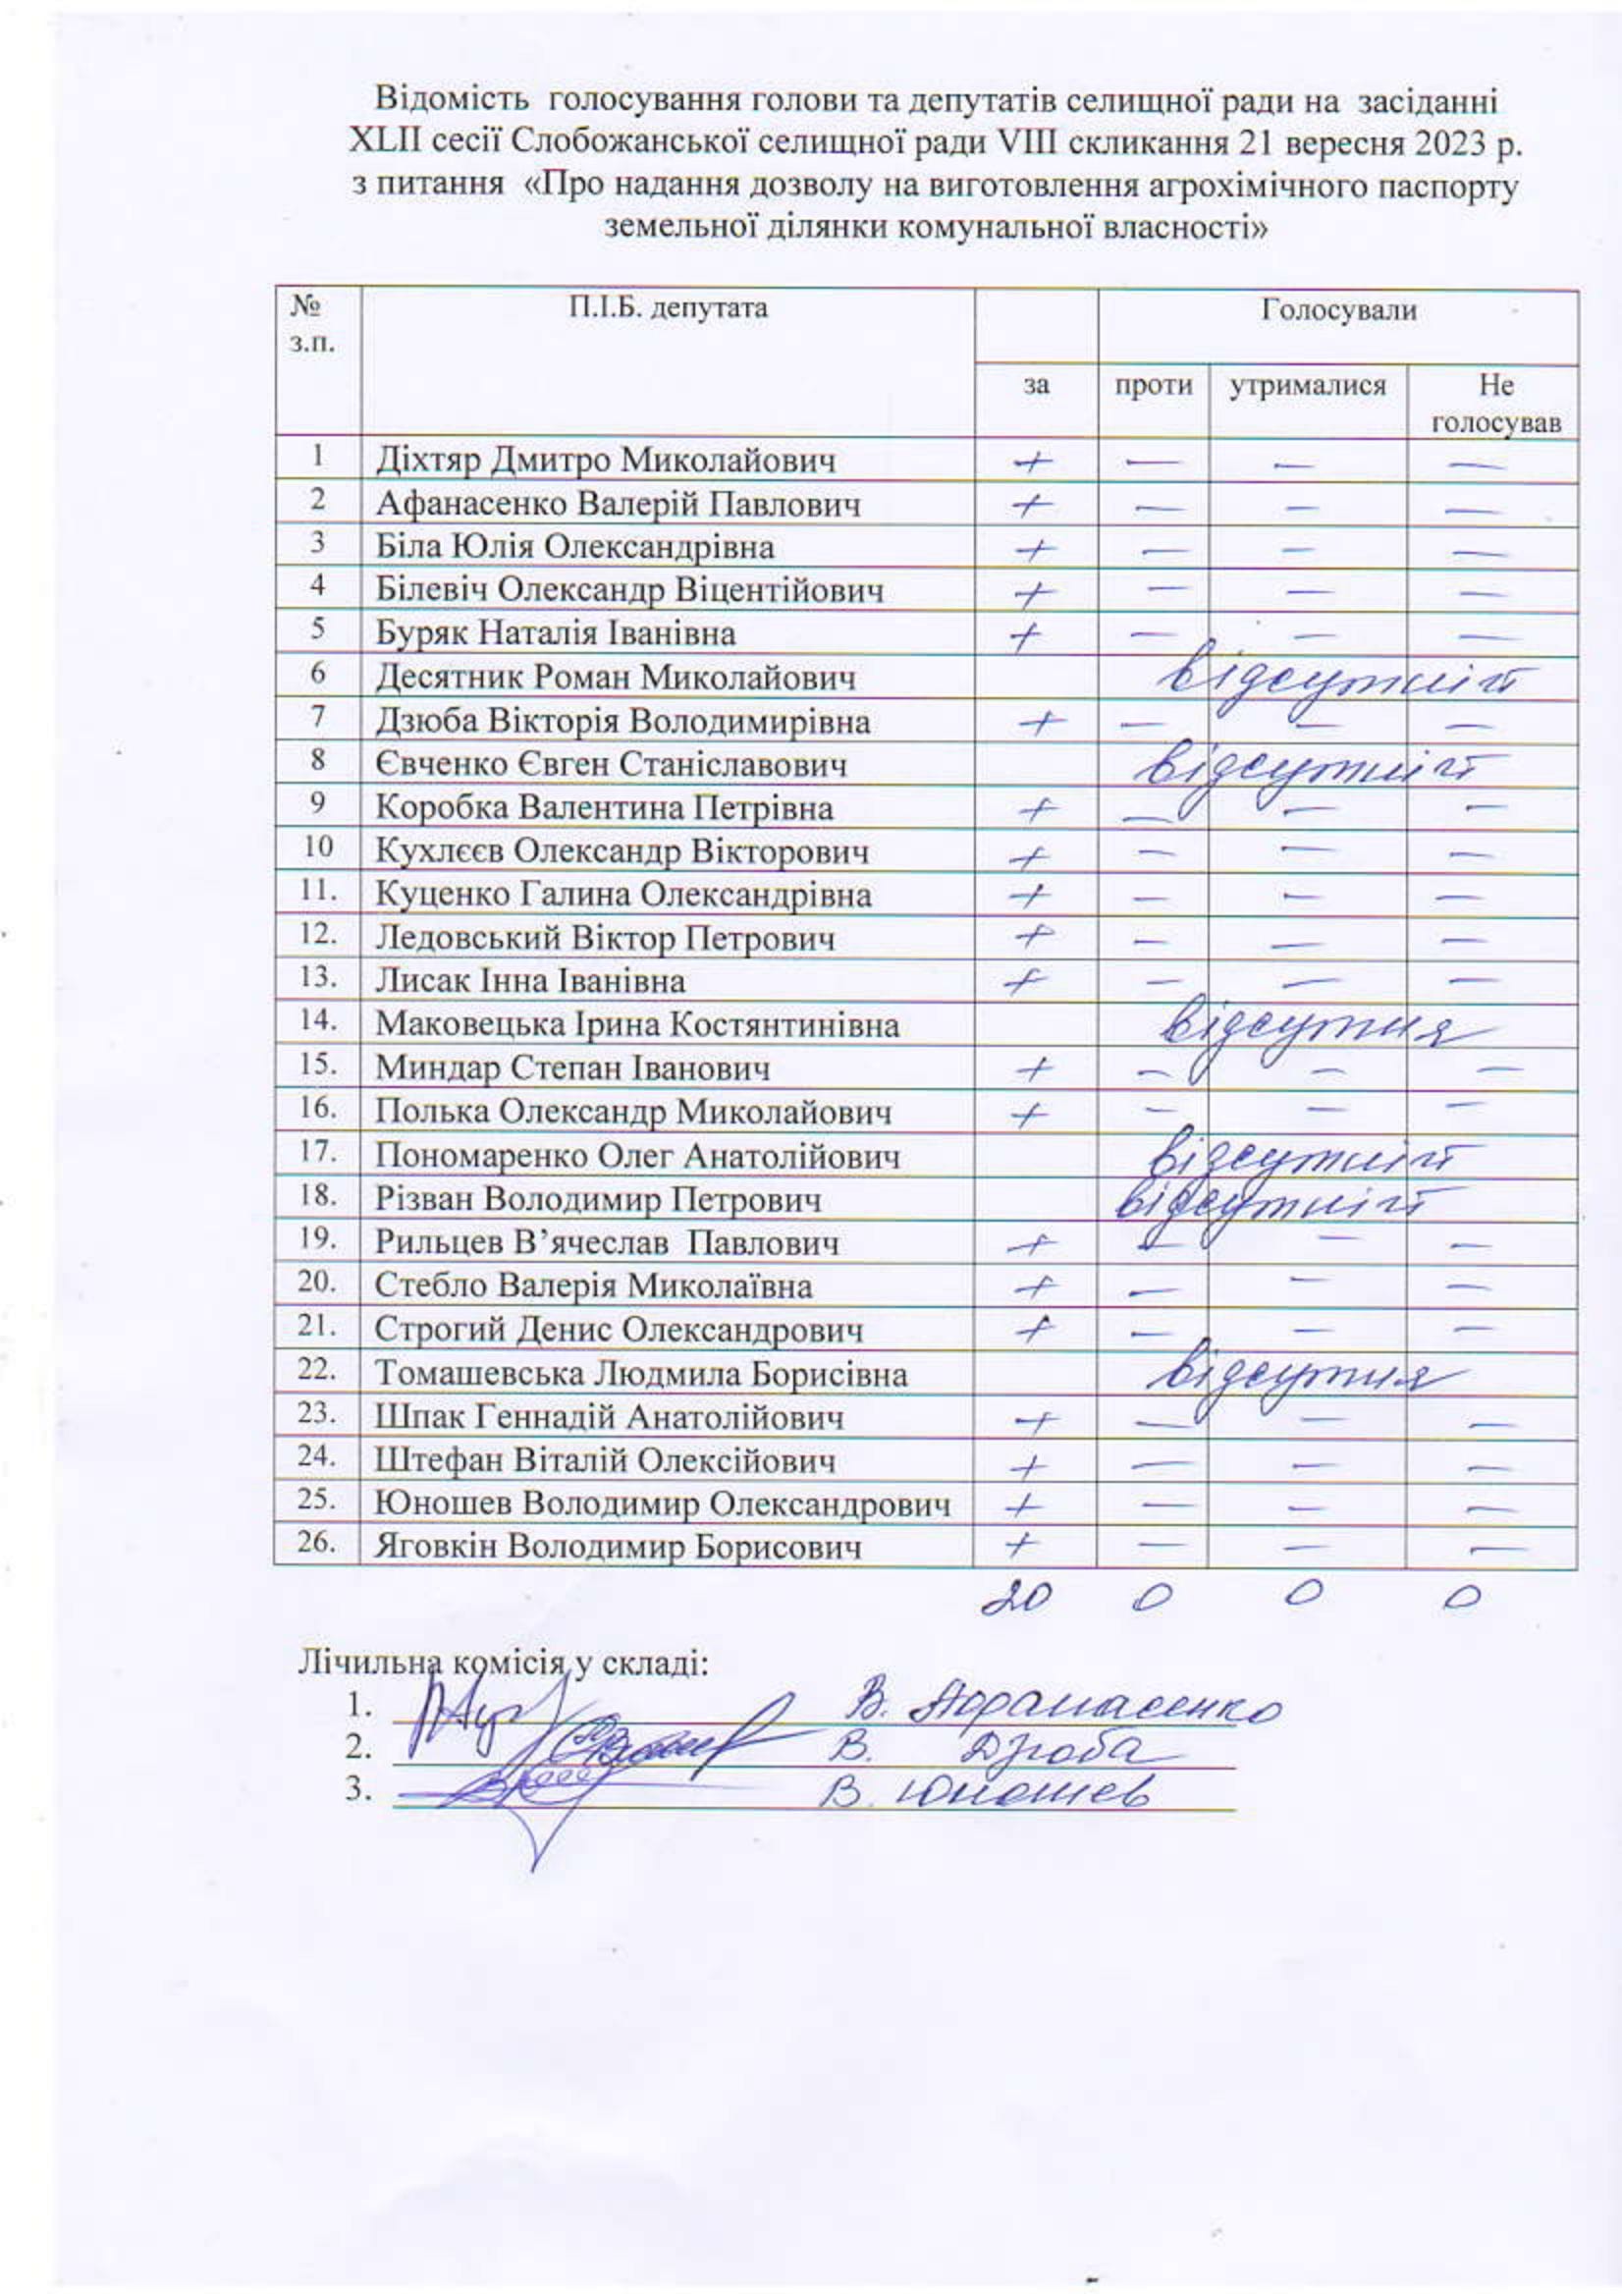 Відомість голосування голови та депутатів селищної ради на засіданні
XLII сесії Слобожанської селищної ради VIII скликання 21 вересня 2023 р.
з питання «Про надання дозволу на виготовлення агрохімічного паспорту
земельної ділянки комунальної власності»
№ з.п. П.І.Б. депутата Голосували
за проти утрималися Не голосував
1 Діхтяр Дмитро Миколайович + — — —
2 Афанасенко Валерій Павлович + — — —
3 Біла Юлія Олександрівна + — — —
4 Білевіч Олександр Віцентійович + — — —
5 Буряк Наталія Іванівна + — — —
6 Десятник Роман Миколайович відсутній
7 Дзюба Вікторія Володимирівна + — — —
8 Євченко Євген Станіславович відсутній
9 Коробка Валентина Петрівна + — — —
10 Кухлєєв Олександр Вікторович + — — —
11. Куценко Галина Олександрівна + — — —
12. Ледовський Віктор Петрович + — — —
13. Лисак Інна Іванівна + — — —
14. Маковецька Ірина Костянтинівна відсутня
15. Миндар Степан Іванович + — — —
16. Полька Олександр Миколайович + — — —
17. Пономаренко Олег Анатолійович відсутній
18. Різван Володимир Петрович відсутній
19. Рильцев В’ячеслав Павлович + — — —
20. Стебло Валерія Миколаївна + — — —
21. Строгий Денис Олександрович + — — —
22. Томашевська Людмила Борисівна відсутня
23. Шпак Геннадій Анатолійович + — — —
24. Штефан Віталій Олексійович + — — —
25. Юношев Володимир Олександрович + — — —
26. Яговкін Володимир Борисович + — — —
20 0 0 0
Лічильна комісія у складі:
1. В. Афанасенко
2. В. Дзюба
3. В. Юношев